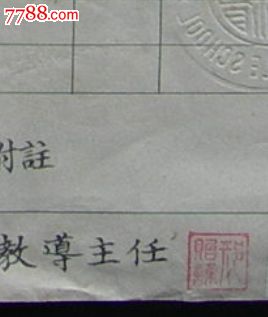 7788.com
SCHOOL
附註
教導主任